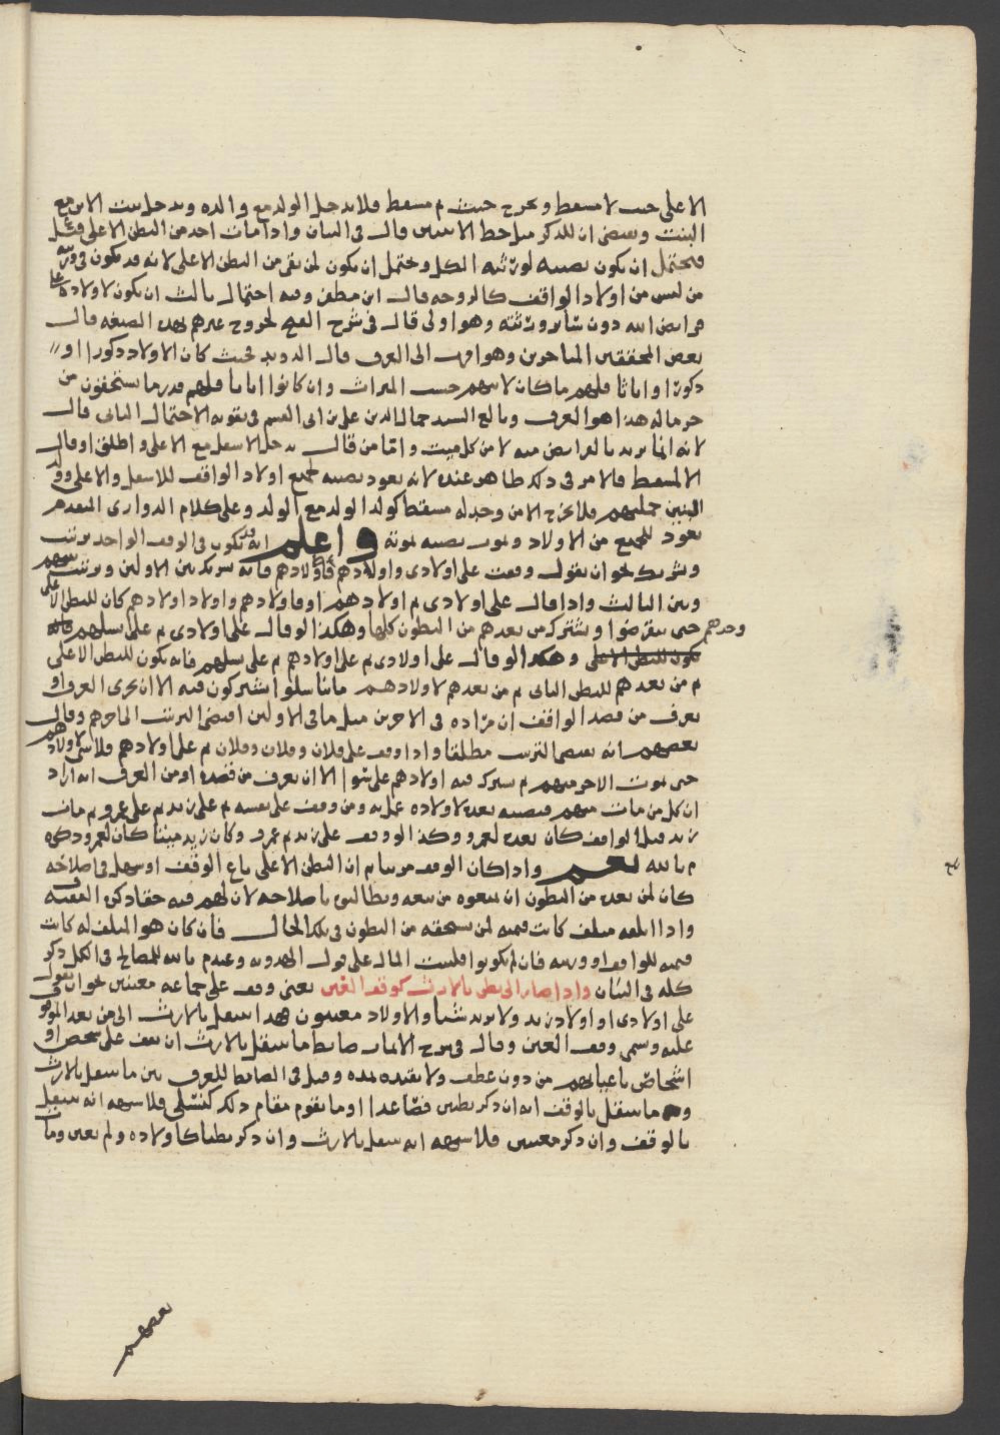 الاعلى حيث لا مسقط ويخرج حيث ثم مسقط فلا يدخل الولد مع والده ويدخل بنت الابن مع
البنت وبعضى ان للذكر مثل حظ الانثيين قال في البيان واذا مات احد من البطن الاعلى
فيحتمل ان يكون نصيبه لورثته الكل ويحتمل ان يكون لمن بقي من البطن الاعلى لانه قد يكون في ورثته
من ليس من اولاد الواقف كالزوجه قال ابن مظفر وفيه احتمال ثالث ان يكون لاولاده على
فرايض الله دون سائر ورثته وهو اولى قال في شرح الفتح لخروج غيرهم بهذه الصيغه قال
بعض المحققين المتاخرين وهو اقرب الى العرف قال الدويد فحيث كان الاولاد ذكورا او
ذكورا واناثا فلهم ما كان لابيهم حسب الميراث وان كانوا اناثا فلهم قدر ما يستحقون من
جر ماله هذا هو العرف وبالغ السيد جمال الدين علي بن ابي القسم في تقويه الاحتمال الثاني قال
لانه انما يريد بالفرايض منه لا من كل ميت واما من قال يدخل الاسفل مع الاعلى واطلق او قال
الا لمسقط فالامر في ذلك ظاهر عنده لانه يعود نصيبه لجميع اولاد الواقف للاسفل والاعلى وولد
البنين جملتهم فلا يخرج الا من وجد له مسقط كولد الولد مع الولد وعلى كلام الدواري المتقدم
يعود للجميع من الاولاد ويورث نصيبه بموته واعلم انه قد يكون في الوقف الواحد ترتيب
وشريك نحو ان يقول وقفت على اولادي واولادهم فاولادهم فانه شريك بين الاولين وترتيب بينهم
وبين الثالث واذا قال على اولادي ثم اولادهم او فاولادهم واولاد اولادهم كان للبطن الاعلى
وحدهم حتى ينقرضوا ويشترك من بعدهم من البطون كلها وهكذا لو قال على اولادي ثم على نسلهم فانه
يكون للبطن الاعلى وهكذا لو قال على اولادي ثم على اولادهم ثم على نسلهم فانه يكون للبطن الاعلى
ثم من بعدهم للبطن الثاني ثم من بعدهم لاولادهم ما تناسلوا يشتركون فيه الا ان يجري العرف او
يعرف من قصد الواقف ان مراده في الاخرين مثل ما في الاولين اقتضى الترتيب الى اخرهم وقال
بعضهم انه يقتضى الترتيب مطلقا واذا وقف على فلان وفلان وفلان ثم على اولادهم فلا شي لاولادهم
حتى يموت الاخر منهم ثم يشترك فيه اولادهم على سوا الا ان يعرف من قصده او من العرف انه اراد
ان كل من مات منهم فنصيبه بعده لاولاده عمل به ومن وقف على نفسه ثم على زيد ثم على عمرو ثم مات
زيد قبل الواقف كان بعده لعمرو وكذا لو وقف على زيد ثم عمرو وكان زيد ميتا كان لعمرو ذكره
م بالله نعم واذا كان الوقف مرتبا ثم ان البطن الاعلى باع الوقف او سهل في اصلاحه
كان لمن بعده من البطون ان يمنعوه من بيعه ويطالبوه باصلاحه لان لهم فيه حقا ذكره الفقيه
واذا اتلفه متلف كانت قيمته لمن يستحقه من البطون في تلك الحال فان كان هو المتلف له كانت
قيمته للواقف او ورثته فان لم يكونوا فلبيت المال على قول الهدويه وعند م بالله للمصالح في الكل ذكر
كله في البيان واذا صار الى بطن بالارث كوقف العين يعني وقف على جماعه معينين نحو ان يقول
على اولادي او اولاد زيد ولا يزيد شيا والاولاد معينون هذا ينتقل بالارث الى من بعد الموقوف
عليه وسمي وقف العين وقال في شرح الاثمار ضابط ما ينتقل بالارث ان يقف على شخص او
اشخاص باعيانهم من دون عطف ولا يقيده بمده وقيل في الضابط للفرق بين ما ينتقل بالارث
وما ينتقل بالوقف انه ان ذكر بطنين فصاعدا او ما يقوم مقام ذلك كنسلي فلا شبهه انه ينتقل
بالوقف وان ذكر معينين فلا شبهه انه ينتقل بالارث وان ذكر بطنا كاولاده ولم يعين وما
بعضهم